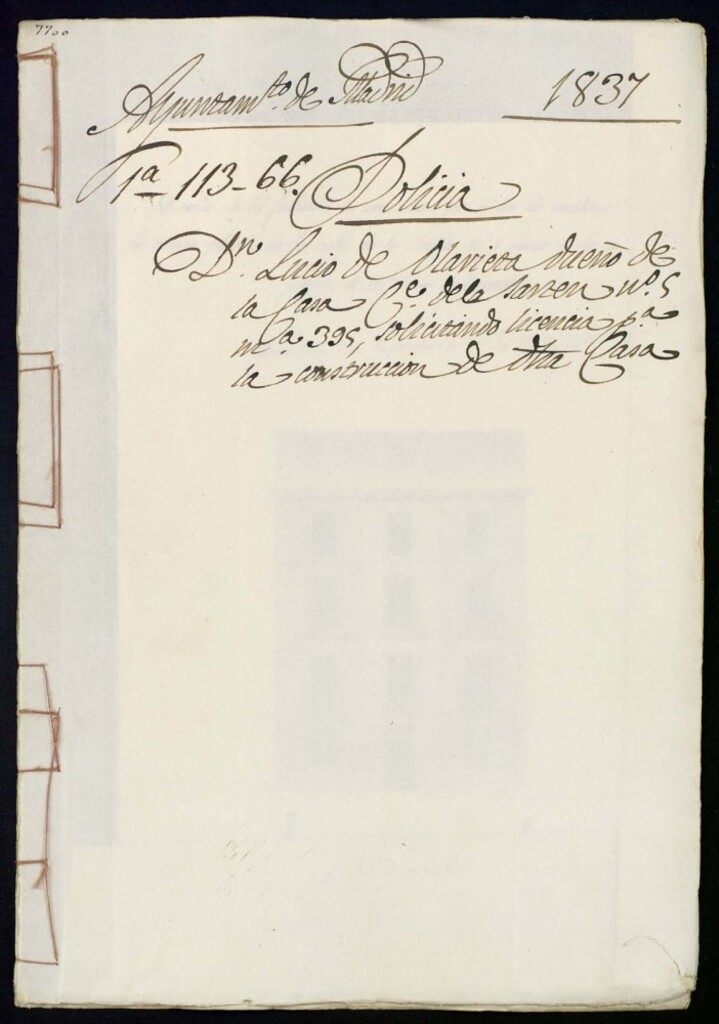 7700
Ayuntamto. de Madrid 1837
1a 113-66. Policia
Dn. Lucio de Olavieta dueño de
la Casa Ce. de la Sarten no. 5
ma 395, solicitando licencia pa
la construccion de dha Casa